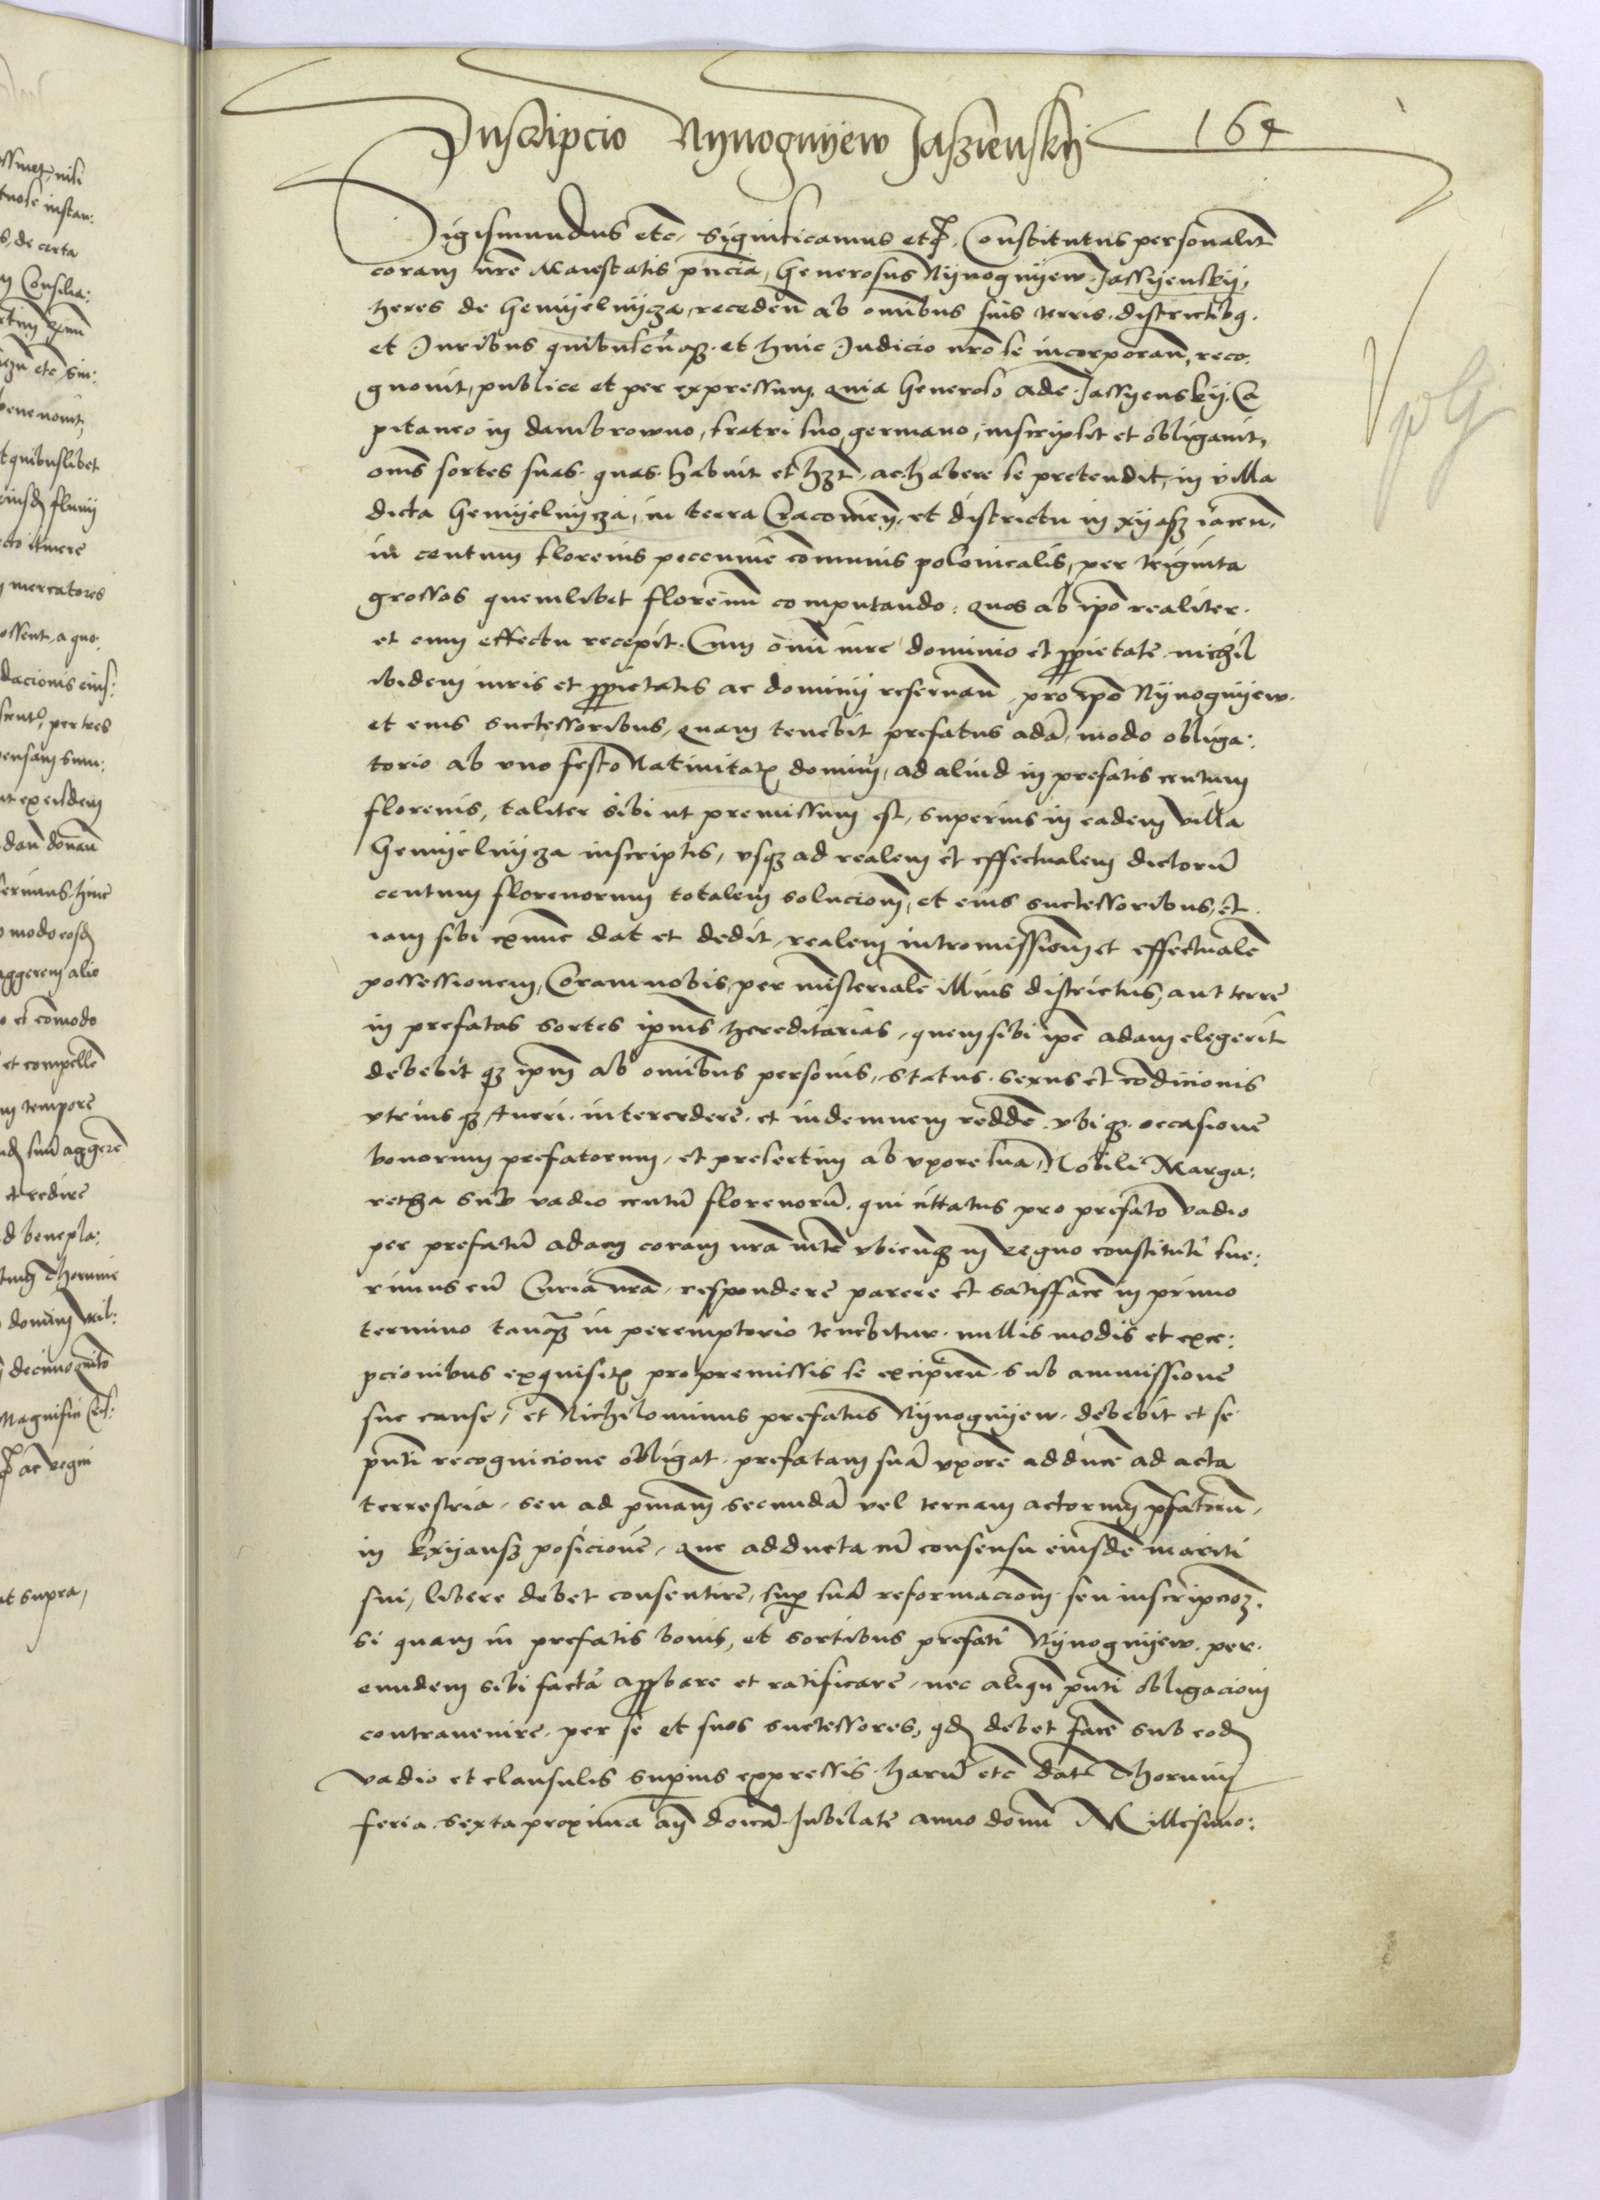 Inscripcio Nynognyew Jaszienskij 164
Sigismundus etc. Significamus etc. Constitutus personalit
coram nre Maiestatis pncia, Generosus Nynognyew Jassyenskij,
heres de Gemyelnycza, receden ab omnibus suis terris districtibq
et Iuribus quibuscuqz et huic Iudicio nro se incorporan, reco
gnovit, publice et per expressum quia Generoso Ade Jassyenskij Ca
pitaneo in dambrowno, fratri suo germano, inscripsit et obligavit,
oms sortes suas quas habuit et hzt, ac habere se pretendit, in villa
dicta Gemyelnycza, in terra Cracovien, et districtu in xyasz iacen,
in centum florenis peccunie comunis polonicalis, per triginta
grossos quemlibet florenum computando, quos ab ipo realiter
et cum effectu recepit. Cum omi iure dominio et ppietate nichil
ibidem iuris et ppietatis ac dominij reservan pro ipo Nynognyew
et eius successoribus, quam tenebit prefatus ada, modo obliga:
torio ab uno festo Nativitatis domini, ad aliud in prefatis centum
florenis, taliter sibi ut premissum est, superius in eadem villa
Gemyelnycza inscriptis, usqz ad realem et effectualem dictoru
centum florenorum totalem solucionem, et eius successoribus, et
iam sibi exnunc dat et dedit, realem intromissionem et effectuale
possessionem, Coram nobis, per misteriale illius districtus, aut terre
in prefatas sortes ipius hereditarias, quem sibi ipe adam elegerit
debebit qz ipm ab omibus personis, status sexus et condicionis
utrius qz, tueri intercedere et indemnem redde ubi qz occasione
bonorum prefatorum, et presertim ab uxore sua, Nobili Marga:
retha sub vadio centu florenoru qui cittatus pro prefato vadio
per prefatu adam coram nra mte ubicunqz in Regno constituti fue:
rimus cu Curia nra, respondere parere et satisface in primo
termino tanqz in peremptorio tenebitur nullis modis et exce:
pcionibus exquisitis pro premissis se excipien sub ammissione
sue cause, et Nichilominus prefatus Nynognyew debebit et se
pnti recognicione obligat prefatam sua uxore adduce ad acta
terrestria, seu ad pmam secunda vel ternam actorum pfatoru,
in Kxyansz posicione, que adducta cu consensu eiusde mariti
sui, libere debet consentire, sup sua reformacionem seu inscripcioz
si quam in prefatis bonis, et sortibus prefati Nynognyew per
eundem sibi facta appbare et ratificare, nec aliqu pnti obligacioni
contravenire, per se et suos successores, qd debet face sub eod
vadio et clausulis supius expressis. haru etc dat Thorunij
feria sexta proxima an doica Iubilate anno domi Millesimo: